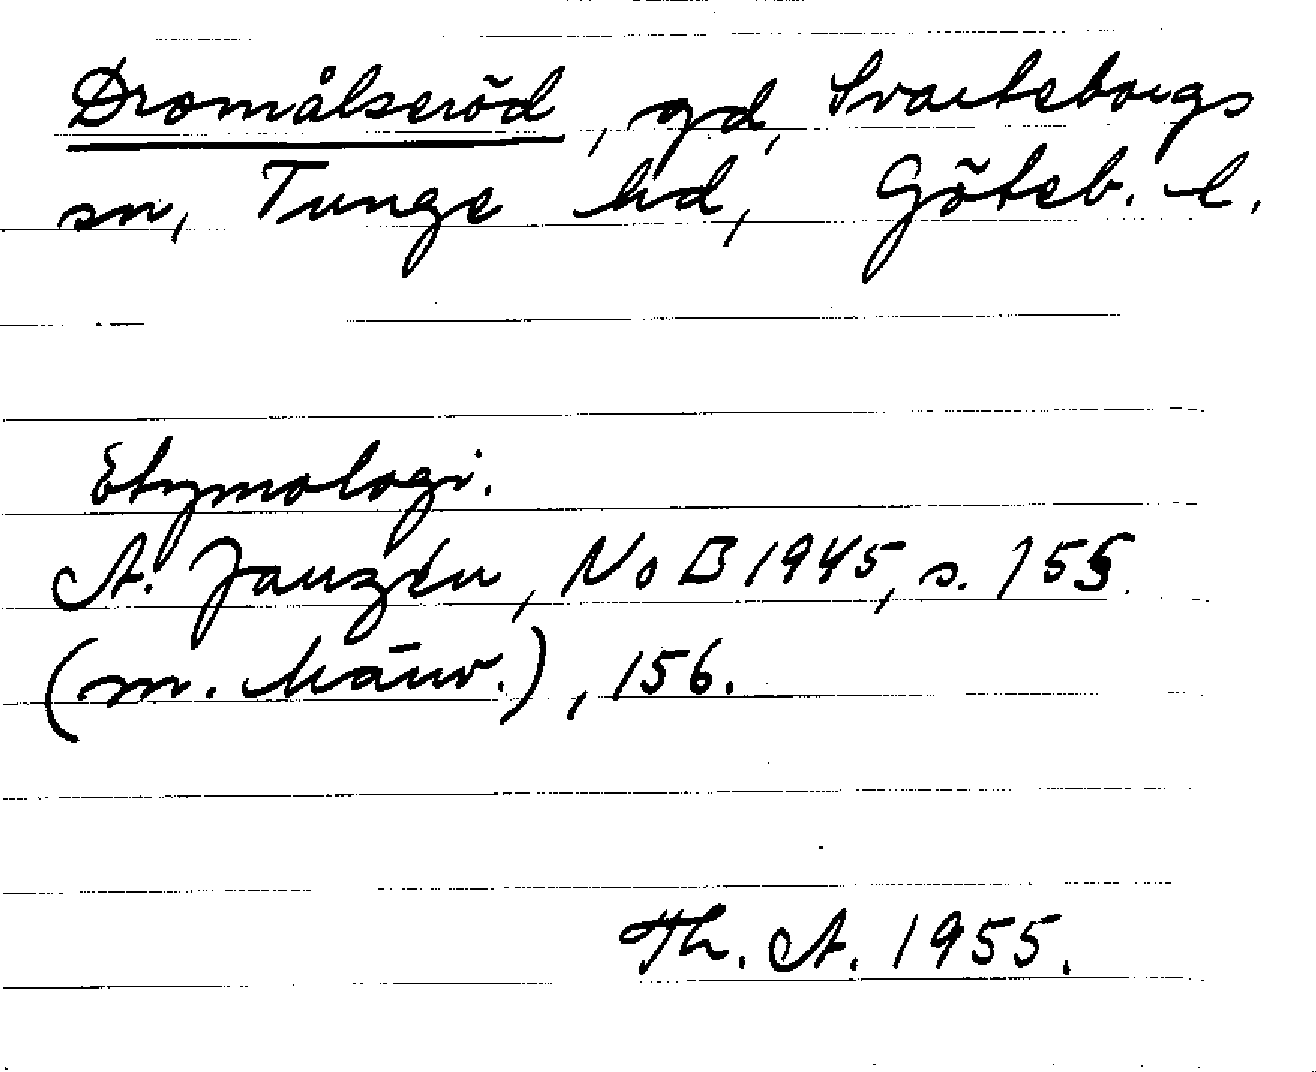 Dromålseröd, gd, Svarteborgs
sn, Tunge hd, Göteb. l.
Etymologi.
A. Janzén, NoB 1945, s. 155
(m. hänv.), 156.
Th. A. 1955.